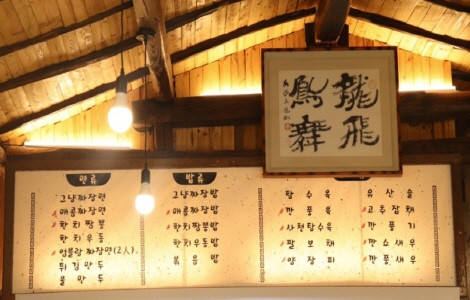 龍飛
鳳舞
면류
그냥짜장면
매콤짜장면
한치짬뽕
한치우동
엄블랑짜장면(2人)
튀김만두
물만두
밥류
그냥짜장밥
매콤짜장밥
한치짬뽕밥
한치우동밥
볶음밥
탕수육
깐풍육
사천탕수육
팔보채
양장피
유산슬
고추잡채
깐풍기
깐쇼새우
깐풍새우